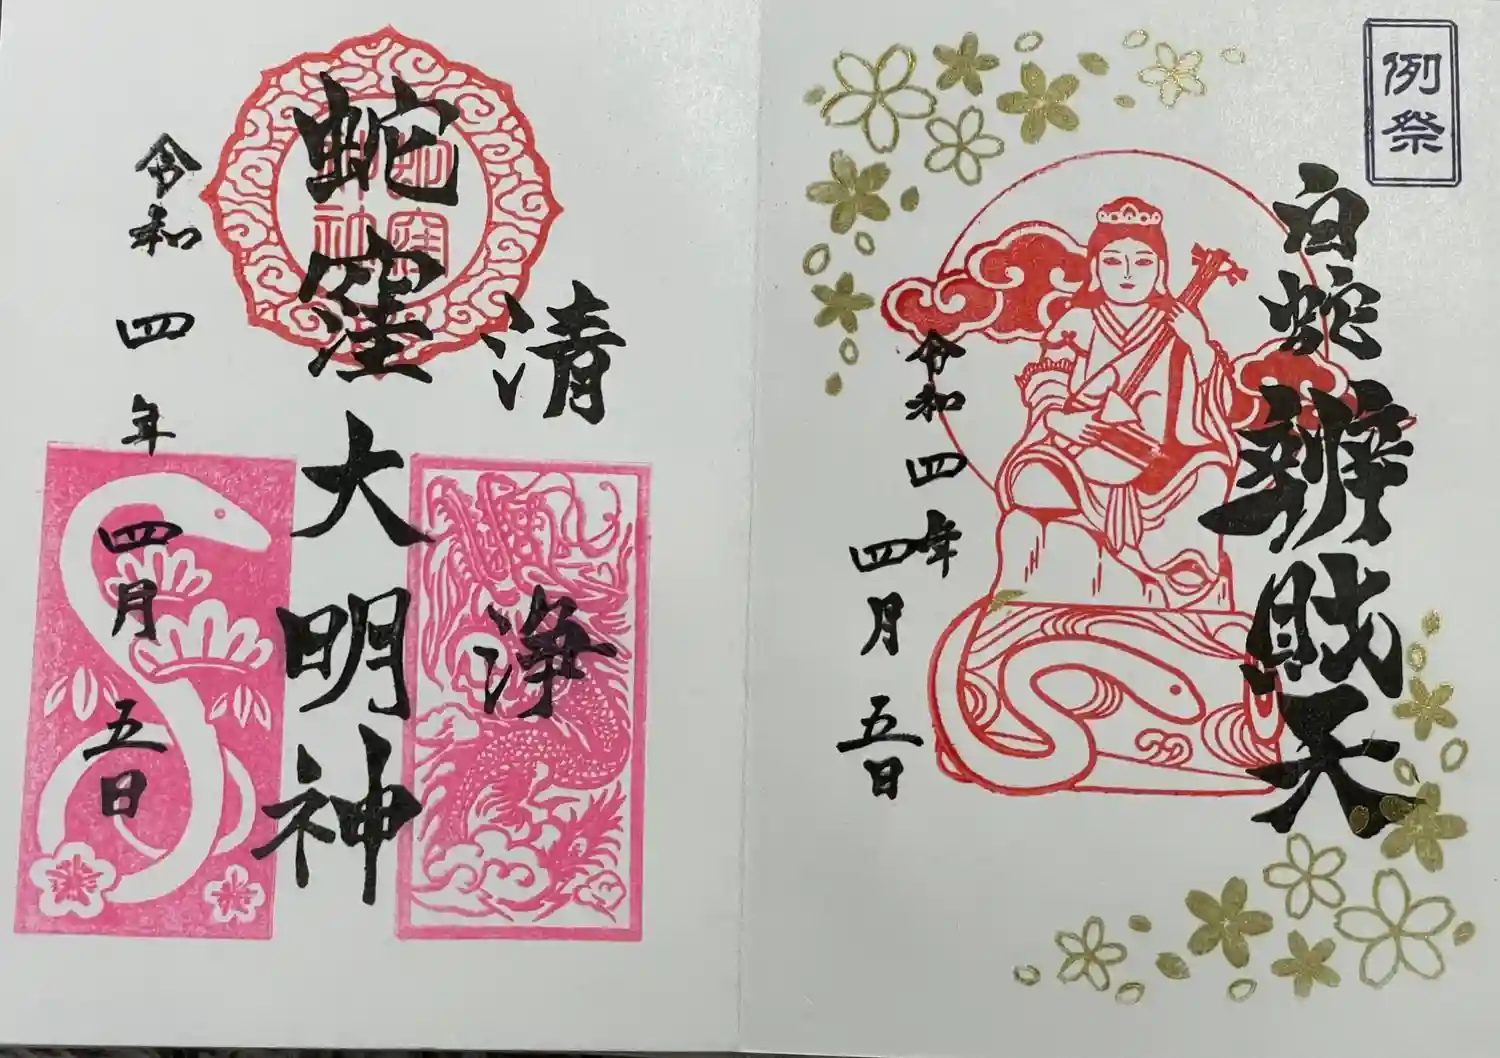 例祭
白蛇辨財天
令和四年四月五日
清
浄
蛇窪大明神
蛇窪神社
令和四年四月五日